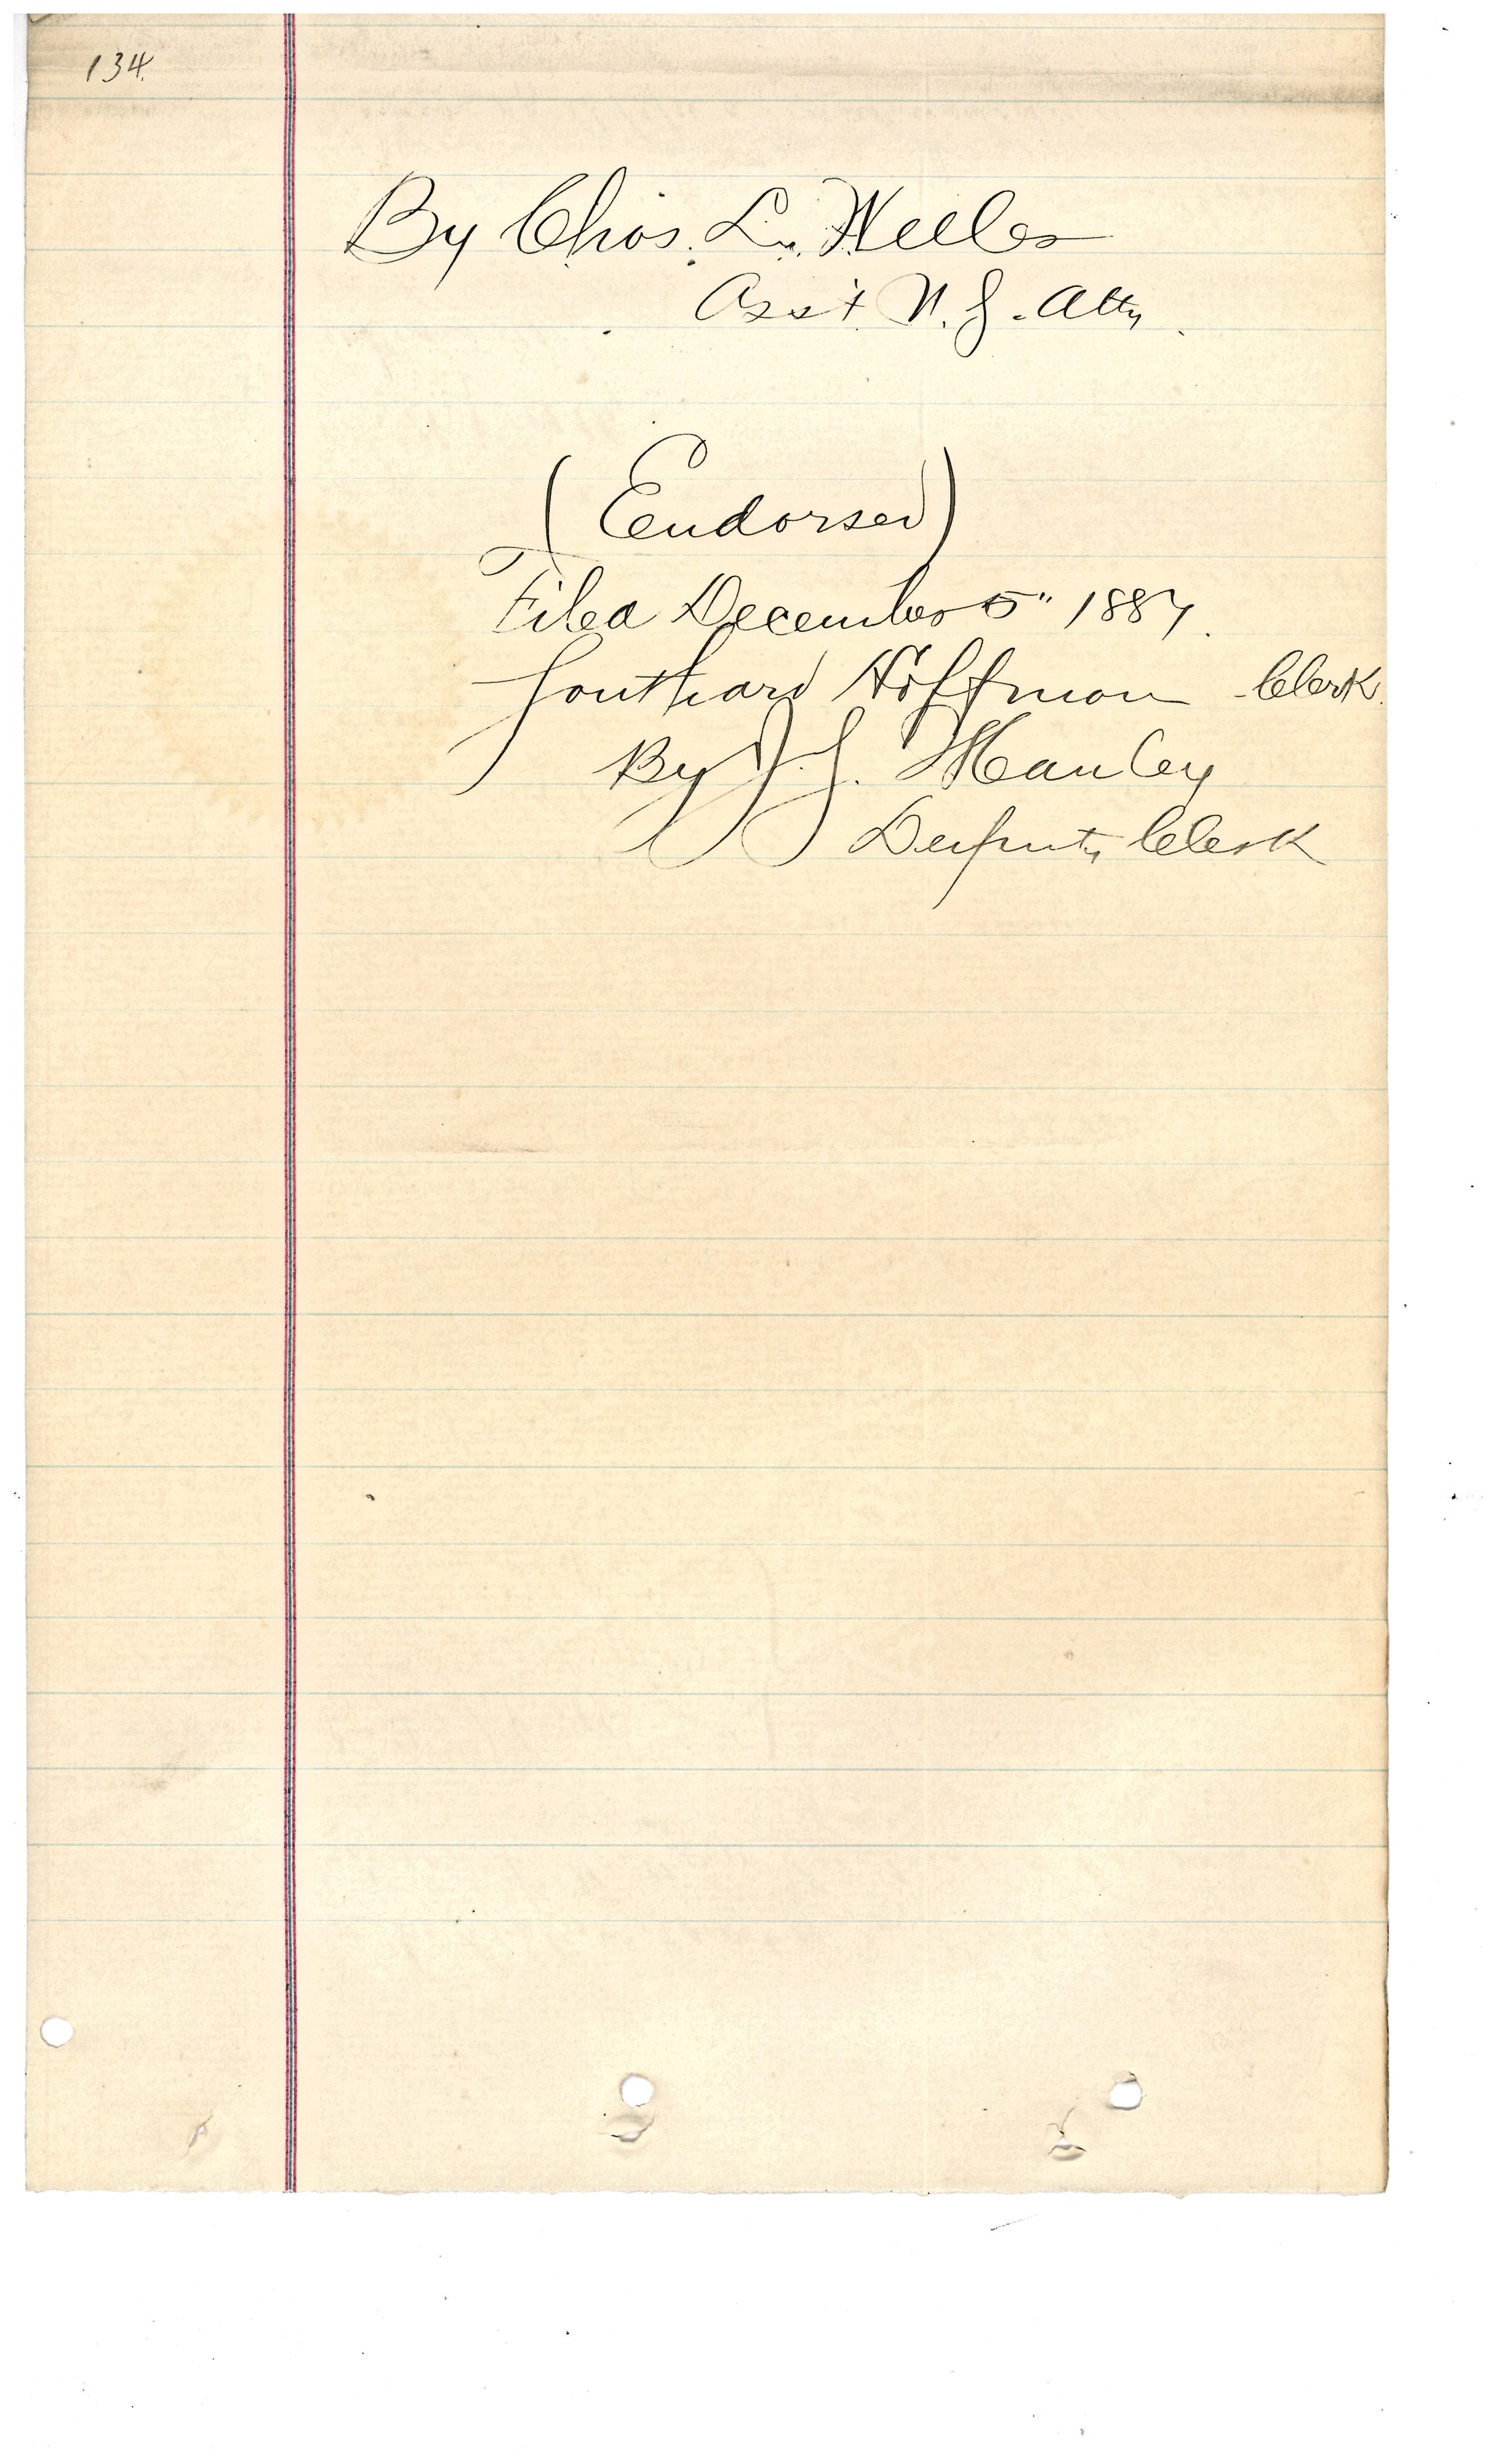 134.
By Chas. L. Weller
Asst U.S. Atty
(Endorsed)
Filed December 5" 1887.
Southard Hoffman Clerk.
By J.S. Manley
Deputy Clerk